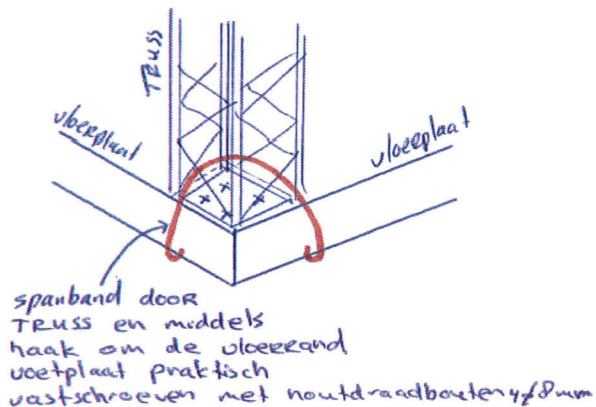 TRUSS
vloerplaat
vloerplaat
spanband door
TRUSS en middels
haak om de vloerrand
voetplaat praktisch
vastschroeven met houtdraadbouten 4ø8mm